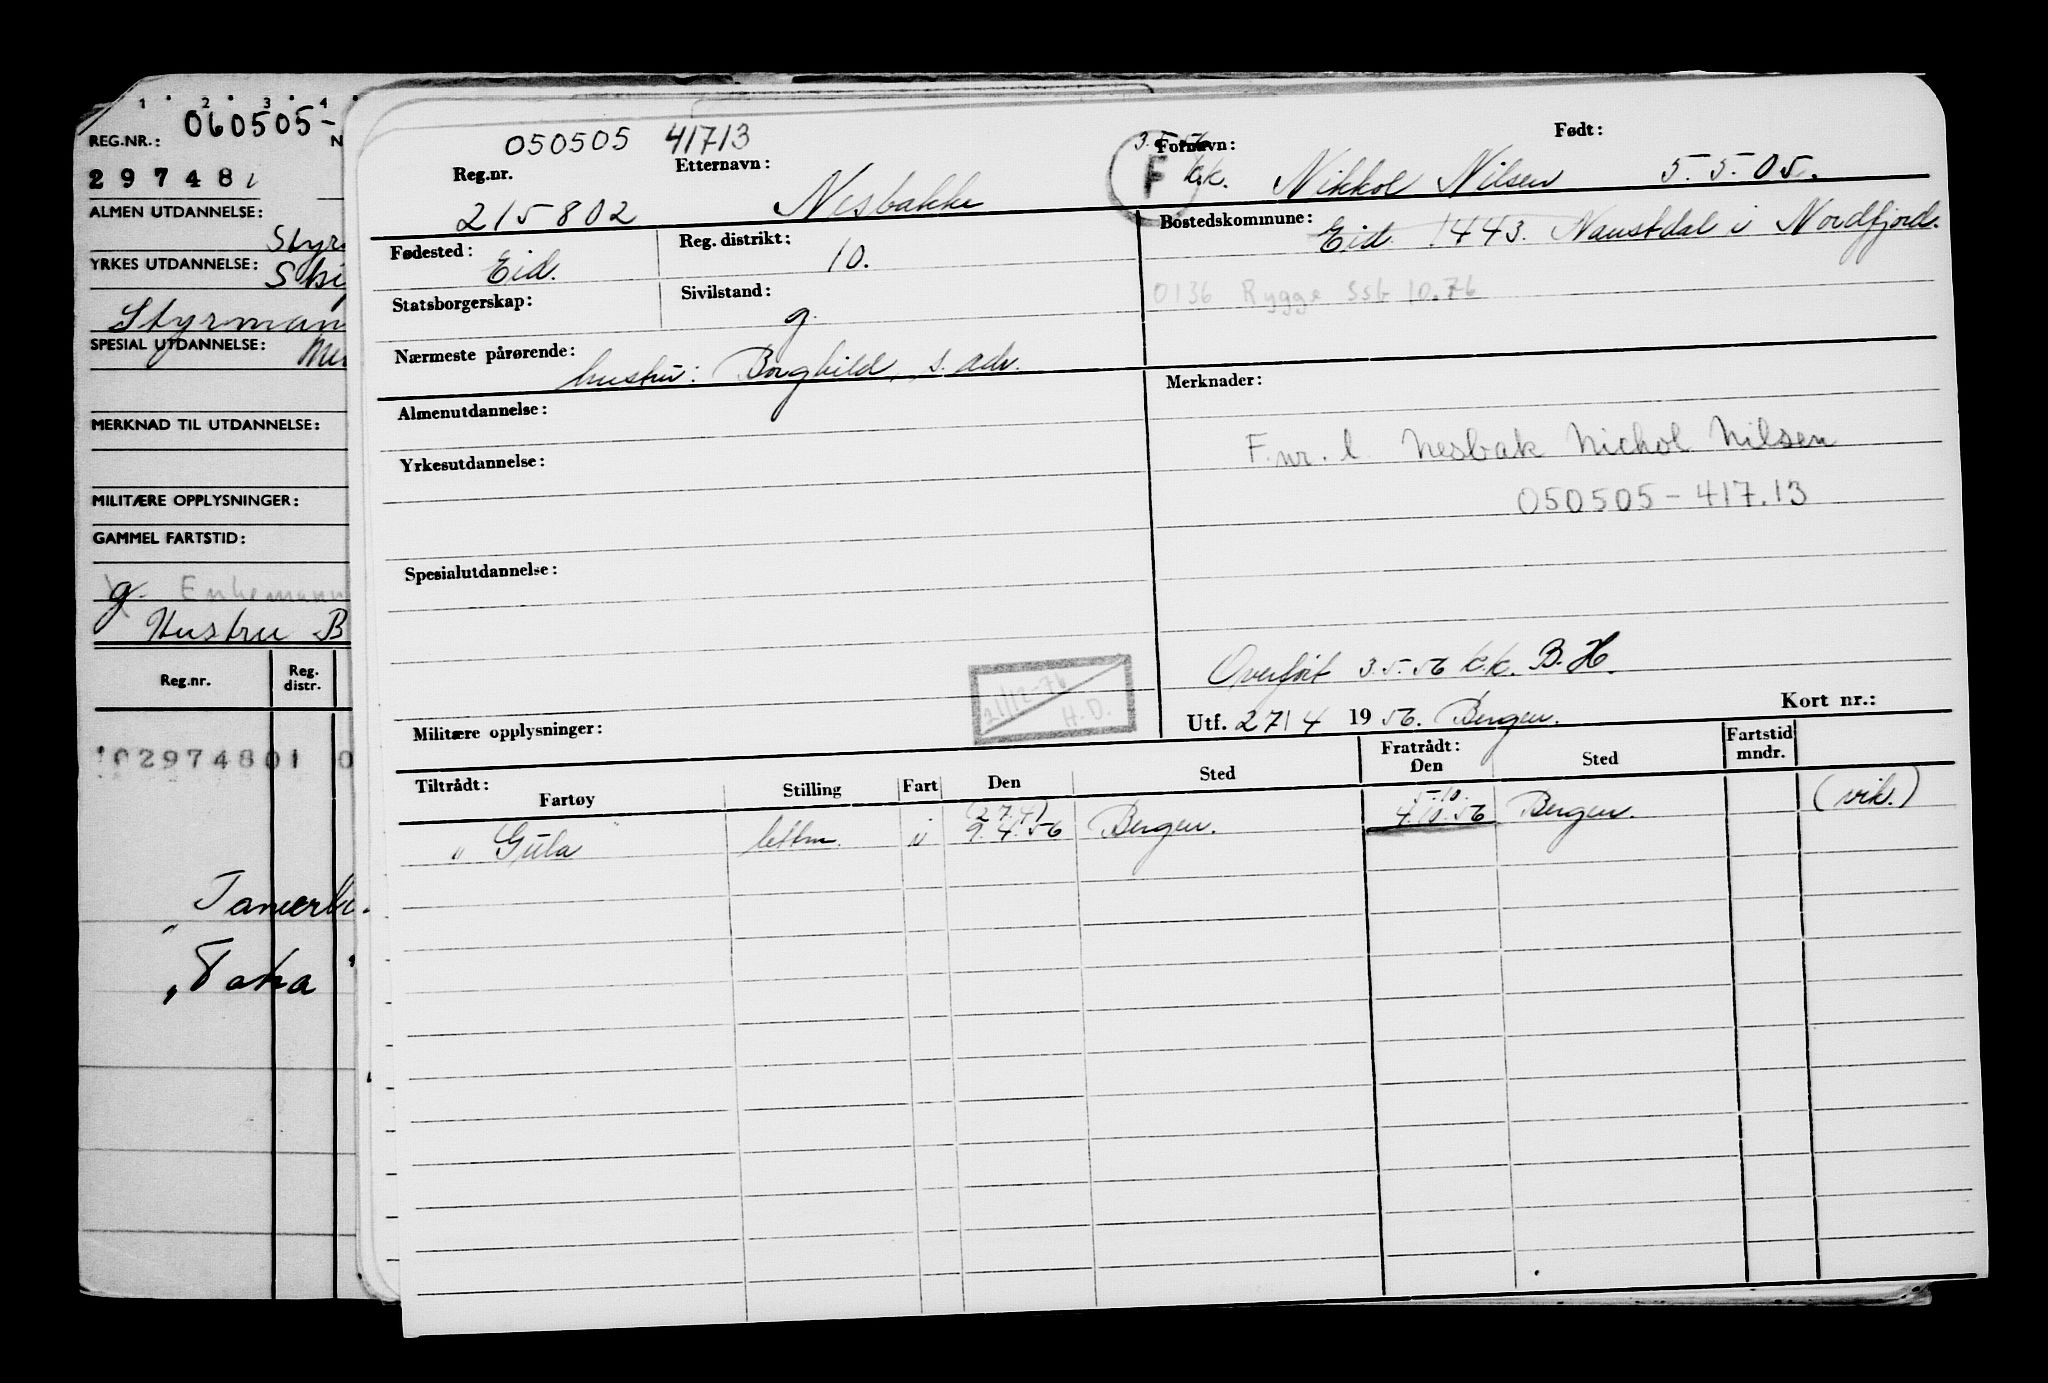 1 2 3 4
REG.NR.: 060505-
297481
ALMEN UTDANNELSE:
YRKES UTDANNELSE:
Styrman
SPESIAL UTDANNELSE:
MERKNAD TIL UTDANNELSE:
MILITÆRE OPPLYSNINGER:
GAMMEL FARTSTID:
g. Enkemann
Hustru B
Reg.nr. Reg. distr.
102974801 0
"Taka"
050505 41713
Reg.nr. Etternavn: Fornavn: Født:
3.5.56 F k.k.
215802 Nesbakke Nikkol Nilsen 5.5.05.
Fødested: Eid. Reg. distrikt: 10.
Bostedskommune: Eid 1443. Naustdal i Nordfjord.
0136 Rygge Ssb 10.76
Statsborgerskap: Sivilstand: g.
Nærmeste pårørende: hustru: Borghild, s. adr.
Merknader:
Almenutdannelse:
F.nr. l. Nesbak Nichol Nilsen
050505-417.13
Yrkesutdannelse:
Spesialutdannelse:
Overført 3.5.56 k.k. B.H.
21/12-76 H.D.
Militære opplysninger:
Utf. 27/4 1956. Bergen. Kort nr.:
Tiltrådt: Fratrådt:
Fartøy Stilling Fart Den Sted Den Sted Fartstid mndr.
(27.4) 5.10.
"Gula" lettm. i 9.4.56 Bergen. 4.10.56 Bergen. (vik.)